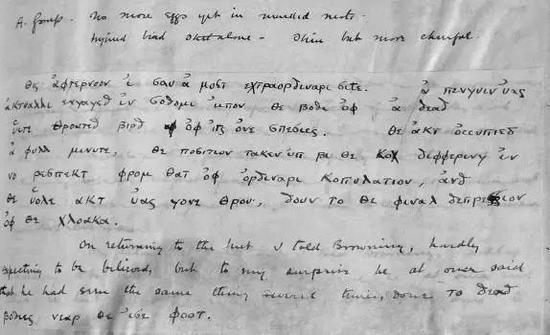 A. Group. No more eggs yet in marked nests.
Injured bird sketalone - Thin but more cheerful.
θις ἀφτερνοον ἰ σαυ ἀ μοστ εχτραορδιναρι σιτε. ἀ πενγυιν ὑας
ἀκτυαλλι ενγαγεδ ἰν σοδομι ὐπον θε βοδε ὀφ ἀ δεαδ
ὑιτε θροατεδ βιρδ ὀφ ἰτς ὀνε σπεσιες. θε ἀκτ ὀccυπιεδ
ἀ φυλλ μινυτε, θε ποσιτιον τακεν ὐπ βι θε κοχ διφφερινγ ἰν
νο ρεσπεκτ φρομ θατ ὀφ ὀρδιναρι κοπυλατιον, ἀνδ
θε ὑολε ἀκτ ὑας γονε θρου, δουν το θε φιναλ δεπρεσσιον
ὀφ θε χλοακα.
On returning to the hut I told Browning, hardly
expecting to be believed, but to my surprise he at once said
that he had seen the same thing several times, done to δεαδ
βοδιες νεαρ θε ἰσε φοοτ.